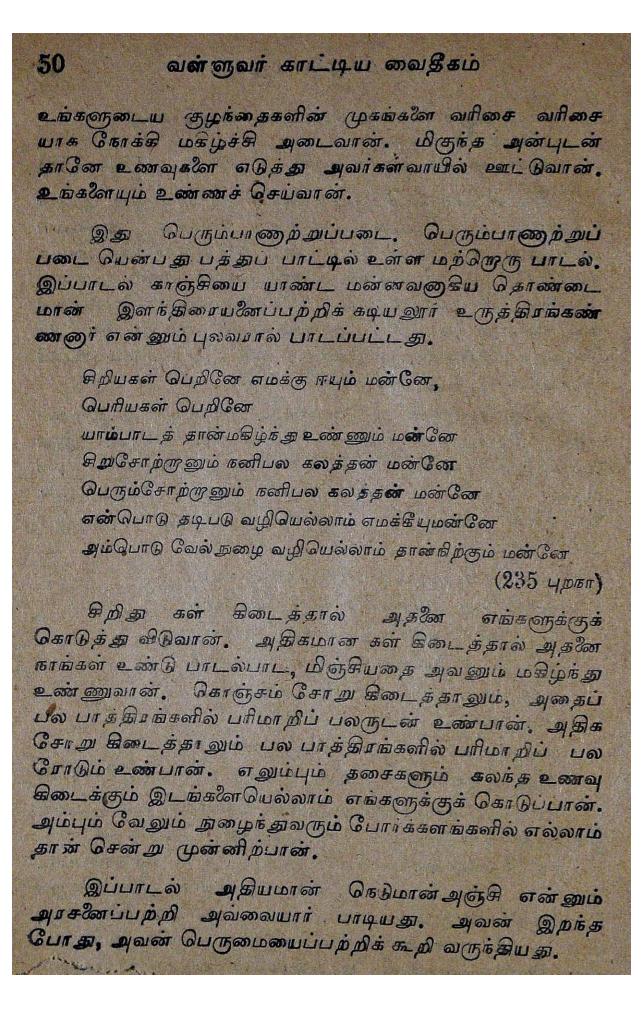 50 வள்ளுவர் காட்டிய வைதீகம்
உங்களுடைய குழந்தைகளின் முகங்களை வரிசை வரிசை
யாக நோக்கி மகிழ்ச்சி அடைவான். மிகுந்த அன்புடன்
தானே உணவுகளை எடுத்து அவர்கள்வாயில் ஊட்டுவான்.
உங்களையும் உண்ணச் செய்வான்.
இது பெரும்பாணாற்றுப்படை. பெரும்பாணாற்றுப்
படை யென்பது பத்துப் பாட்டில் உள்ள மற்றொரு பாடல்.
இப்பாடல் காஞ்சியை யாண்ட மன்னவனாகிய தொண்டை
மான் இளந்திரையனைப்பற்றிக் கடியலூர் உருத்திரங்கண்
ணனார் என்னும் புலவரால் பாடப்பட்டது.
சிறியகள் பெறினே எமக்கு ஈயும் மன்னே,
பெரியகள் பெறினே
யாம்பாடத் தான்மகிழ்ந்து உண்ணும் மன்னே
சிறுசோற்றானும் நனிபல கலத்தன் மன்னே
பெரும்சோற்றானும் நனிபல கலத்தன் மன்னே
என்பொடு தடிபடு வழியெல்லாம் எமக்கீயுமன்னே
அம்பொடு வேல்நுழை வழியெல்லாம் தான்நிற்கும் மன்னே
(235 புறநா)
சிறிது கள் கிடைத்தால் அதனை எங்களுக்குக்
கொடுத்து விடுவான். அதிகமான கள் கிடைத்தால் அதனை
நாங்கள் உண்டு பாடல்பாட, மிஞ்சியதை அவனும் மகிழ்ந்து
உண்ணுவான். கொஞ்சம் சோறு கிடைத்தாலும், அதைப்
பல பாத்திரங்களில் பரிமாறிப் பலருடன் உண்பான். அதிக
சோறு கிடைத்தாலும் பல பாத்திரங்களில் பரிமாறிப் பல
ரோடும் உண்பான். எலும்பும் தசைகளும் கலந்த உணவு
கிடைக்கும் இடங்களையெல்லாம் எங்களுக்குக் கொடுப்பான்.
அம்பும் வேலும் நுழைந்துவரும் போர்க்களங்களில் எல்லாம்
தான் சென்று முன்னிற்பான்.
இப்பாடல் அதியமான் நெடுமான்அஞ்சி என்னும்
அரசனைப்பற்றி அவ்வையார் பாடியது. அவன் இறந்த
போது, அவன் பெருமையைப்பற்றிக் கூறி வருந்தியது.